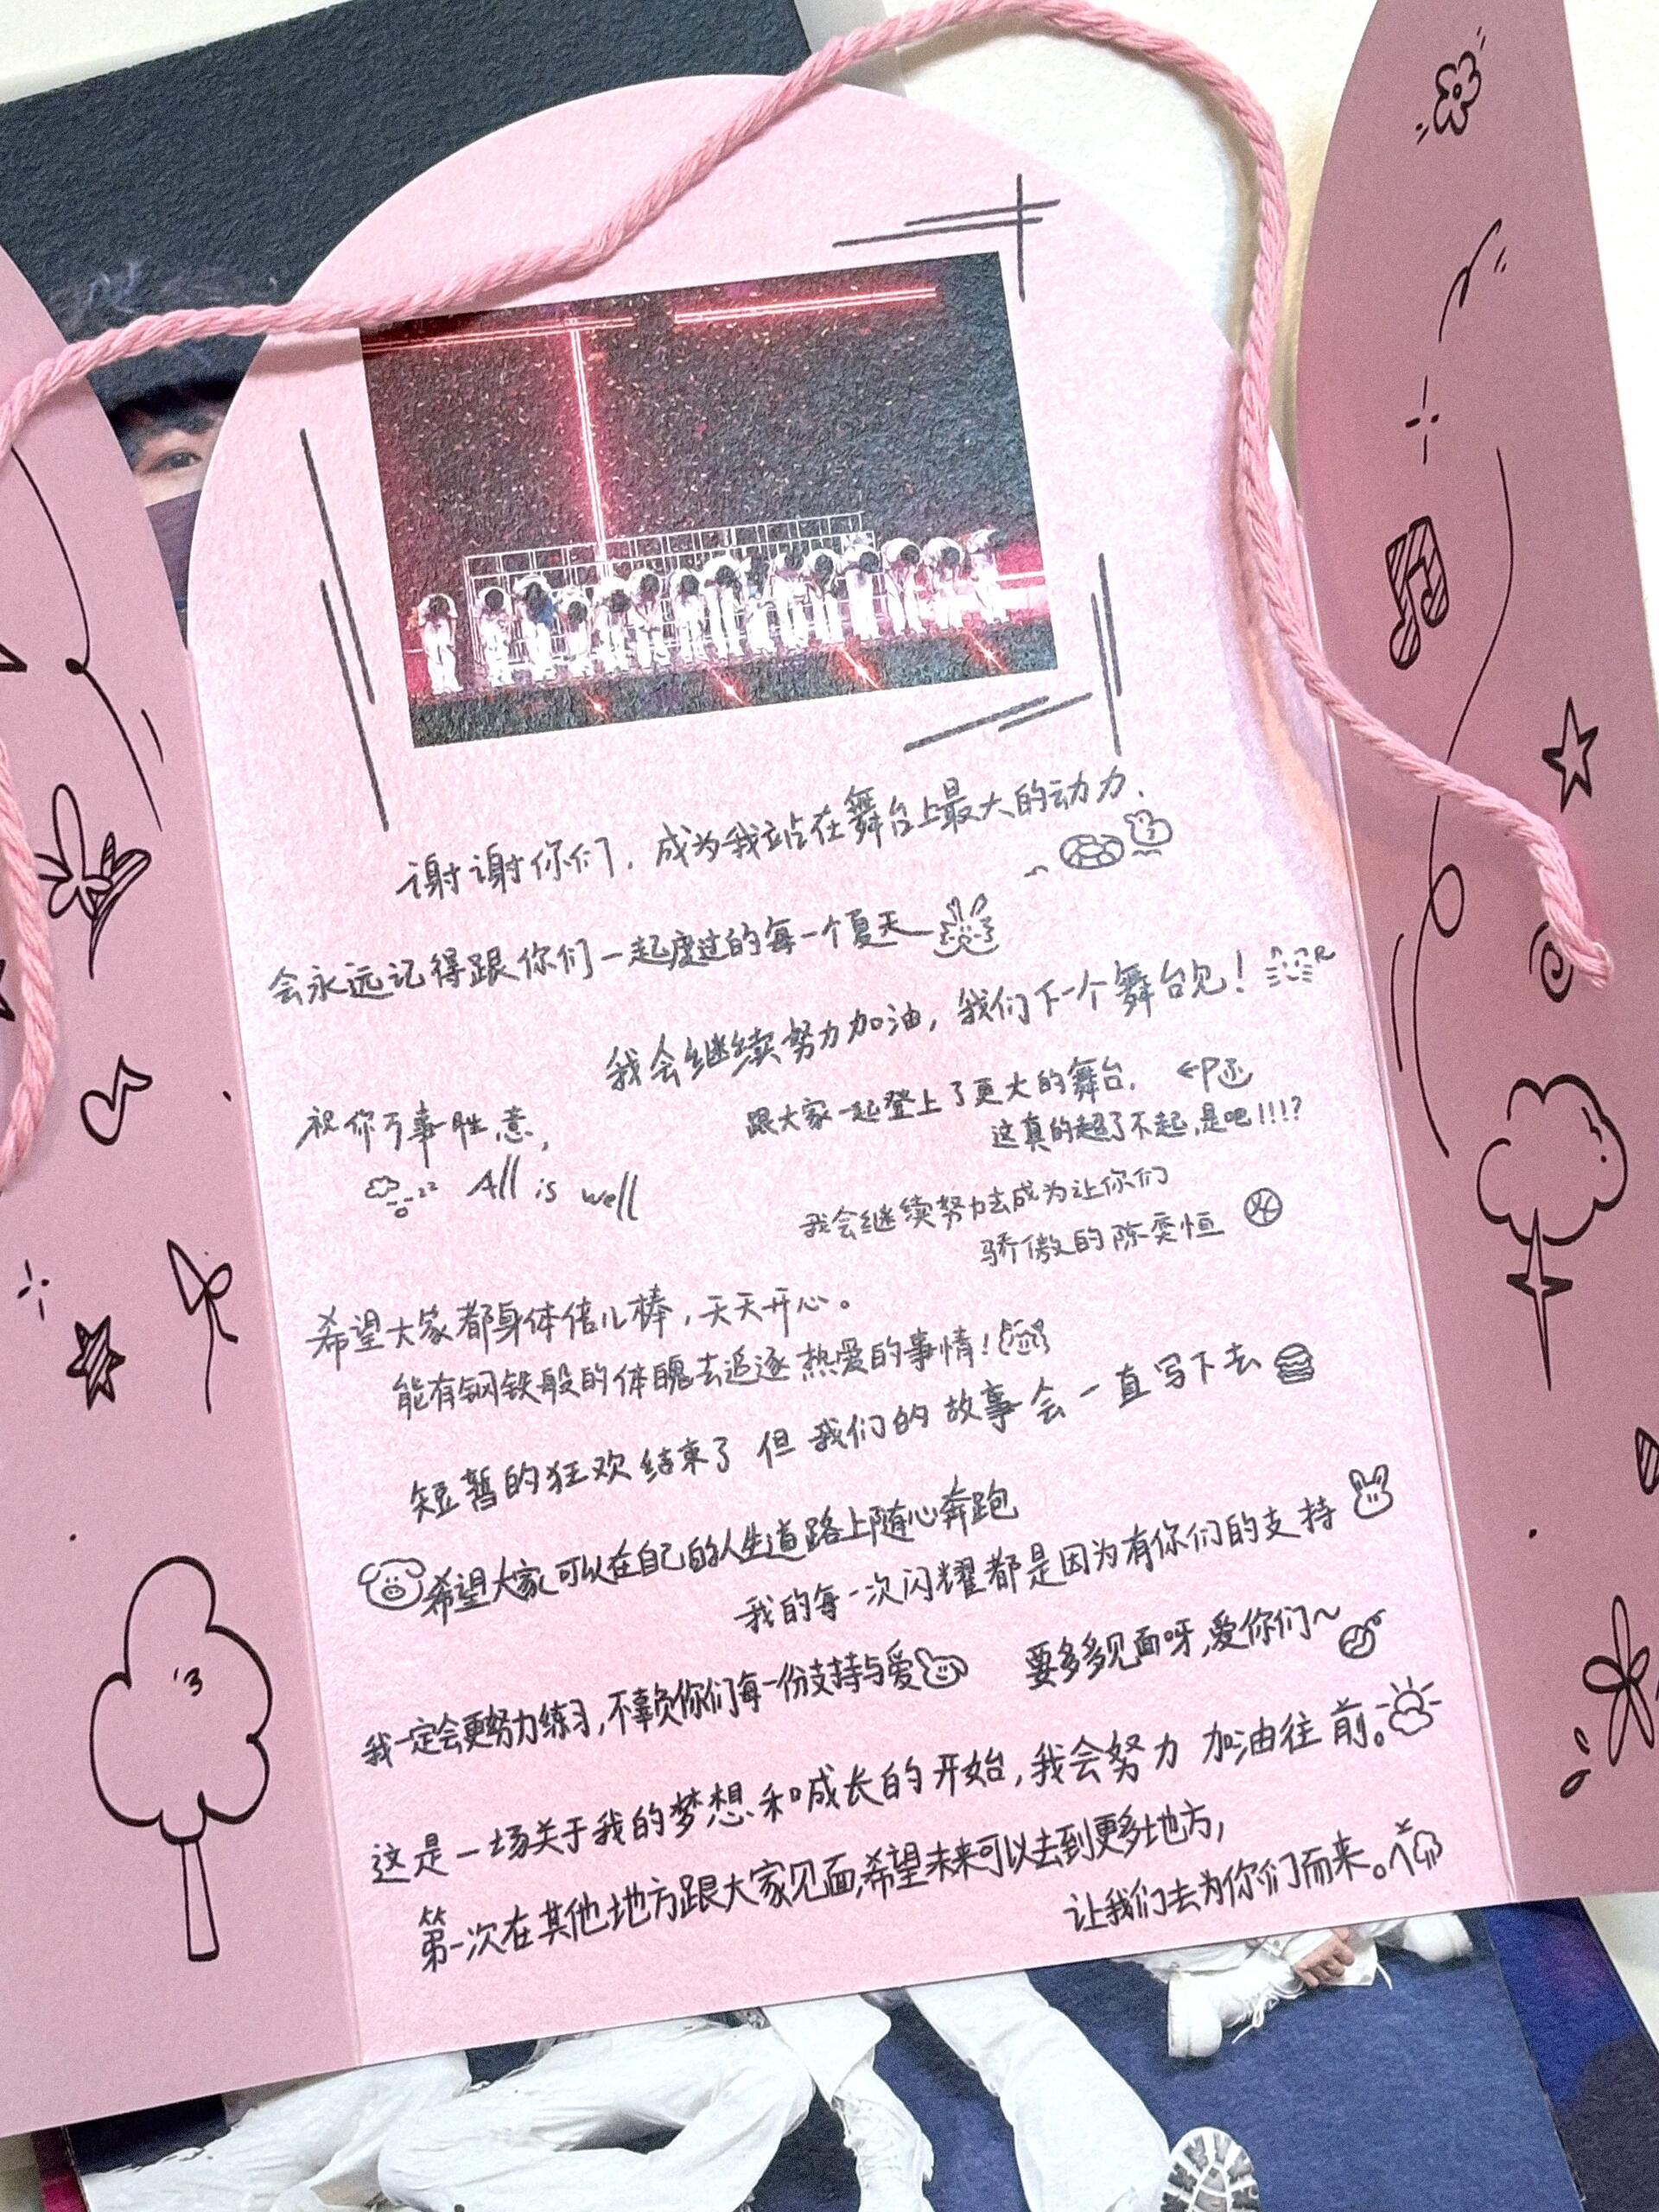 谢谢你们，成为我站在舞台上最大的动力、
会永远记得跟你们一起度过的每一个夏天
我会继续努力加油，我们下一个舞台见！
跟大家一起登上了更大的舞台，
这真的超了不起，是吧!!!?
祝你万事胜意，
All is well
我会继续努力去成为让你们
骄傲的陈奕恒
希望大家都身体倍儿棒，天天开心。
能有钢铁般的体魄去追逐热爱的事情！
短暂的狂欢结束了 但我们的故事会一直写下去
希望大家可以在自己的人生道路上随心奔跑
我的每一次闪耀都是因为有你们的支持
我一定会更努力练习，不辜负你们每一份支持与爱
要多多见面呀，爱你们~
这是一场关于我的梦想和成长的开始，我会努力 加油往前。
第一次在其他地方跟大家见面，希望未来可以去到更多地方，
让我们去为你们而来。